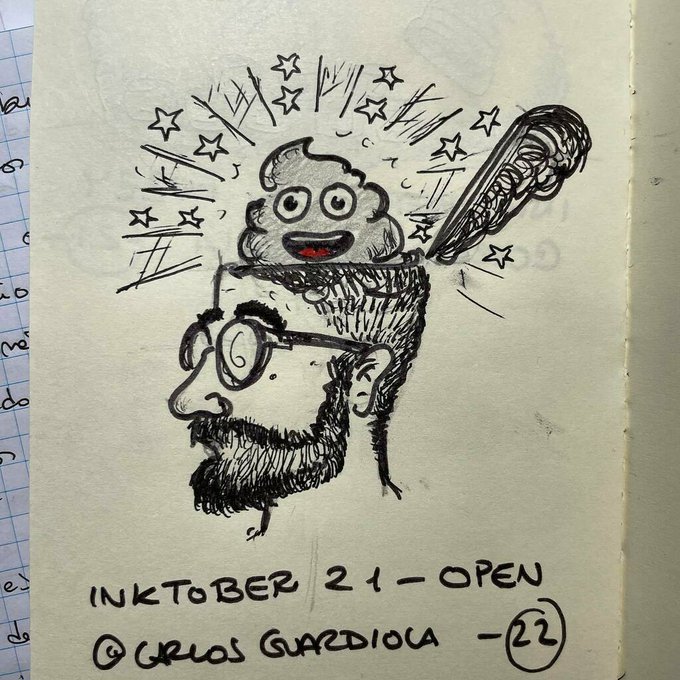 INKTOBER 21 - OPEN
@CARLOS GUARDIOLA - 22